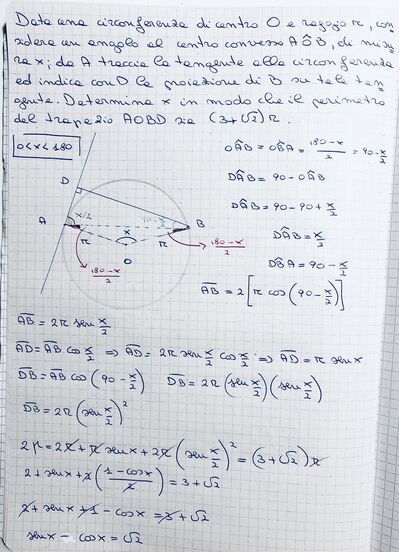 Data una circonferenza di centro O e raggio r, con
sidera un angolo al centro convesso AÔB, di misu
ra x; da A traccia la tangente alla circonferenza
ed indica con D la proiezione di B su tale tan
gente. Determina x in modo che il perimetro
del trapezio AOBD sia (3+√2)r.
0<x<180
OÂB = OB̂A = (180-x)/2 = 90-x/2
DÂB = 90-OÂB
DÂB = 90-90+x/2
DÂB = x/2
DB̂A = 90-x/2
AB = 2[r cos(90-x/2)]
D
A
x/2
x
90-x/2
B
r
r
O
(180-x)/2
(180-x)/2
AB = 2r sen x/2
AD = AB cos x/2 ⇒ AD = 2r sen x/2 cos x/2 ⇒ AD = r sen x
DB = AB cos(90-x/2) DB = 2r(sen x/2)(sen x/2)
DB = 2r(sen x/2)²
2p = 2r + r sen x + 2r(sen x/2)² = (3+√2)r
2 + sen x + 2((1-cos x)/2) = 3+√2
2 + sen x + 1 - cos x = 3+√2
sen x - cos x = √2